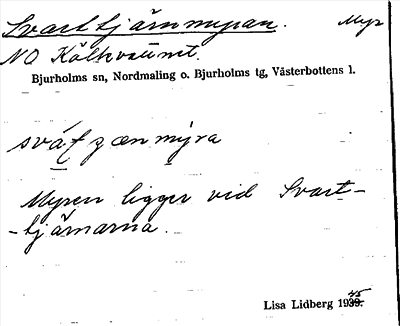 Svarttjärnmyran. Myr
NO Kälkvattnet.
Bjurholms sn, Nordmaling o. Bjurholms tg, Västerbottens l.
Myren ligger vid Svart-
-tjärnarna.
Lisa Lidberg 1939. 45